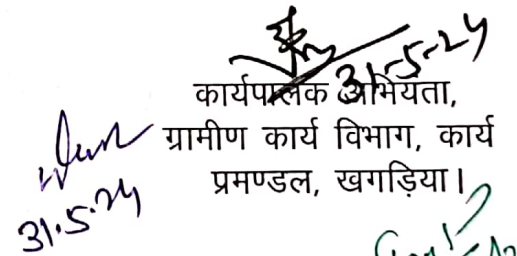 31-5-24
कार्यपालक अभियंता,
ग्रामीण कार्य विभाग, कार्य
प्रमण्डल, खगड़िया।
31.5.24